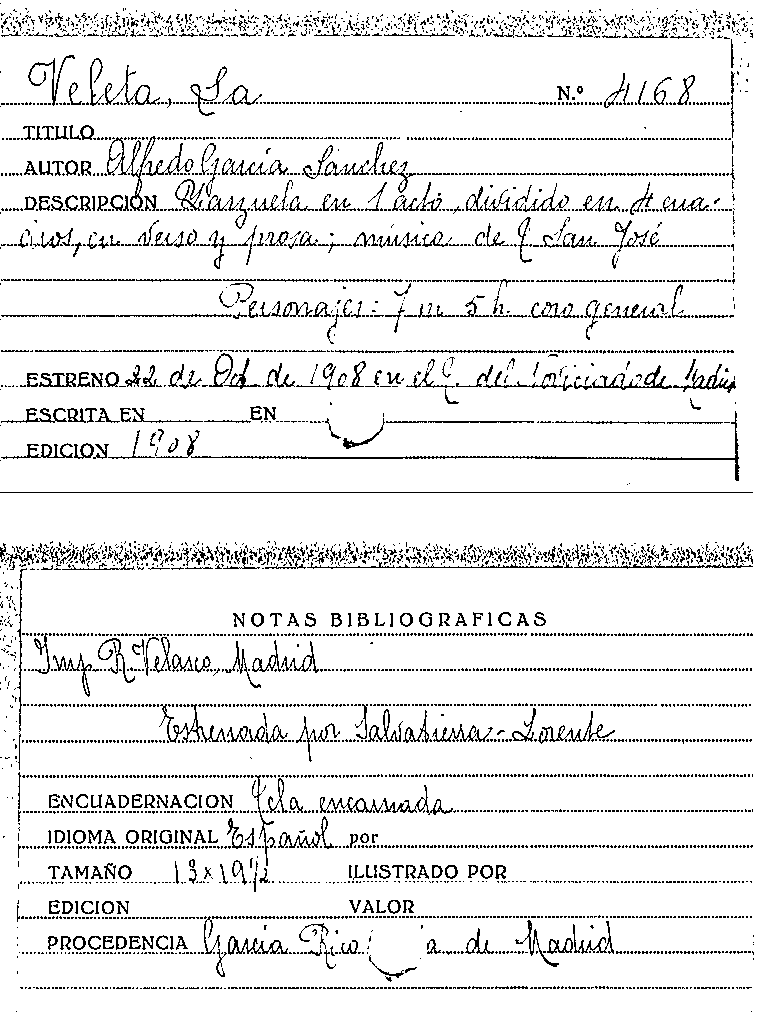 Veleta, La N.º 4168
TITULO
AUTOR Alfredo García Sánchez
DESCRIPCIÓN Zarzuela en 1 acto, dividido en 4 cua-
dros, en verso y prosa; música de T. San José
Personajes: 7 m 5 h. coro general
ESTRENO 22 de Oct. de 1908 en el T. del Noviciado de Madrid
ESCRITA EN EN
EDICION 1908
NOTAS BIBLIOGRAFICAS
Imp R. Velasco, Madrid
Estrenada por Salvatierra - Lorente
ENCUADERNACION Tela encarnada
IDIOMA ORIGINAL Español por
TAMAÑO 13 x 19 1/2 ILUSTRADO POR
EDICION VALOR
PROCEDENCIA García Rico a de Madrid